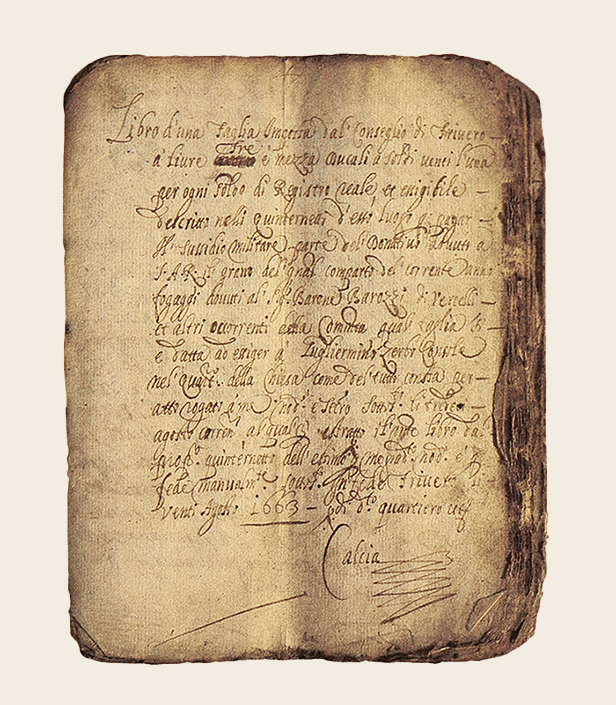 Libro d'una Taglia Imposta dal Conseglio di Trivero
a livre tre e mezza ducali a soldi venti l'una
per ogni soldo di Registro reale et exigibile
descritto nelli quinternetti d'esso luogo per pagar
il Sussidio militare parte del Donativo dovuto a
S. A. R. il grano del qual comparto del corrente anno
fogaggi dovuti al Sr. Barone Barozzi di Vercelli
et altri occorrenti della Comunita qual taglia
e datta ad exiger a Guglielmino Zerbo Console
nel della Chiesa come del tutto consta per
atto rogato a me nod. e Secro sottto. li
agosto corren. al quale estratto il libro dal
quinternetto dell' estimo me nod.
fede manuam. Trivero li
venti Agosto 1663 quartiero
Calcia